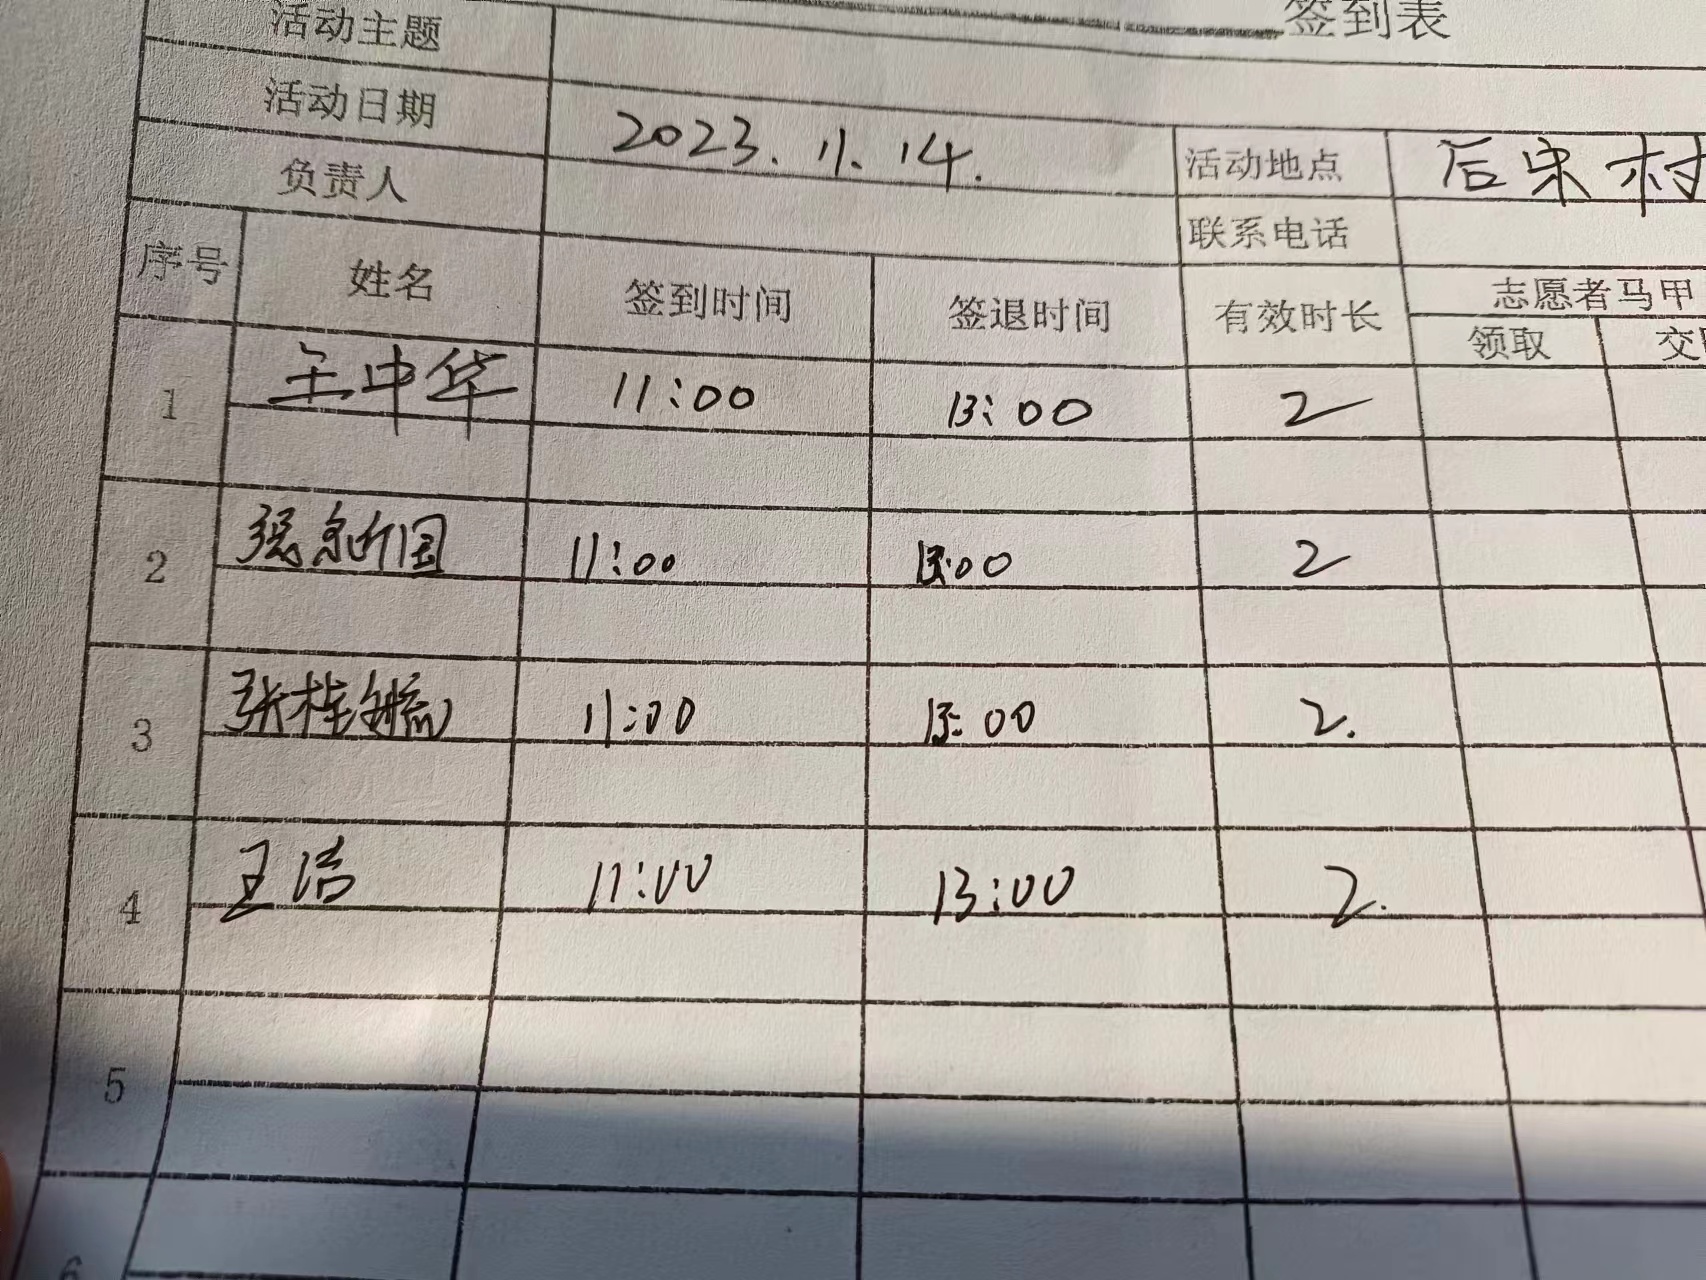 签到表
活动主题
活动日期 2023.11.14. 活动地点 后宋村
负责人 联系电话
序号 姓名 签到时间 签退时间 有效时长 志愿者马甲
领取
1 王中华 11:00 13:00 2
2 11:00 13:00 2
3 11:00 13:00 2.
4 王洁 11:00 13:00 2.
5
6